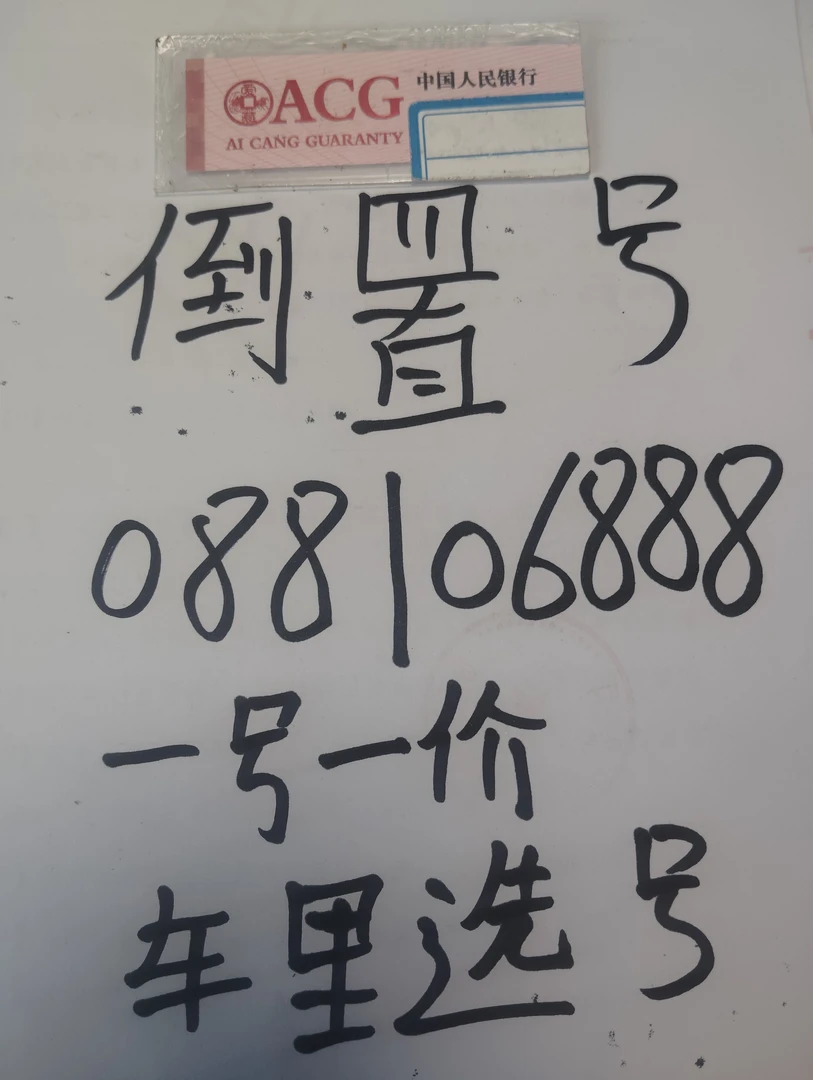 ACG 中国人民银行
AI CANG GUARANTY
倒置号
088106888
一号一价
车里选号